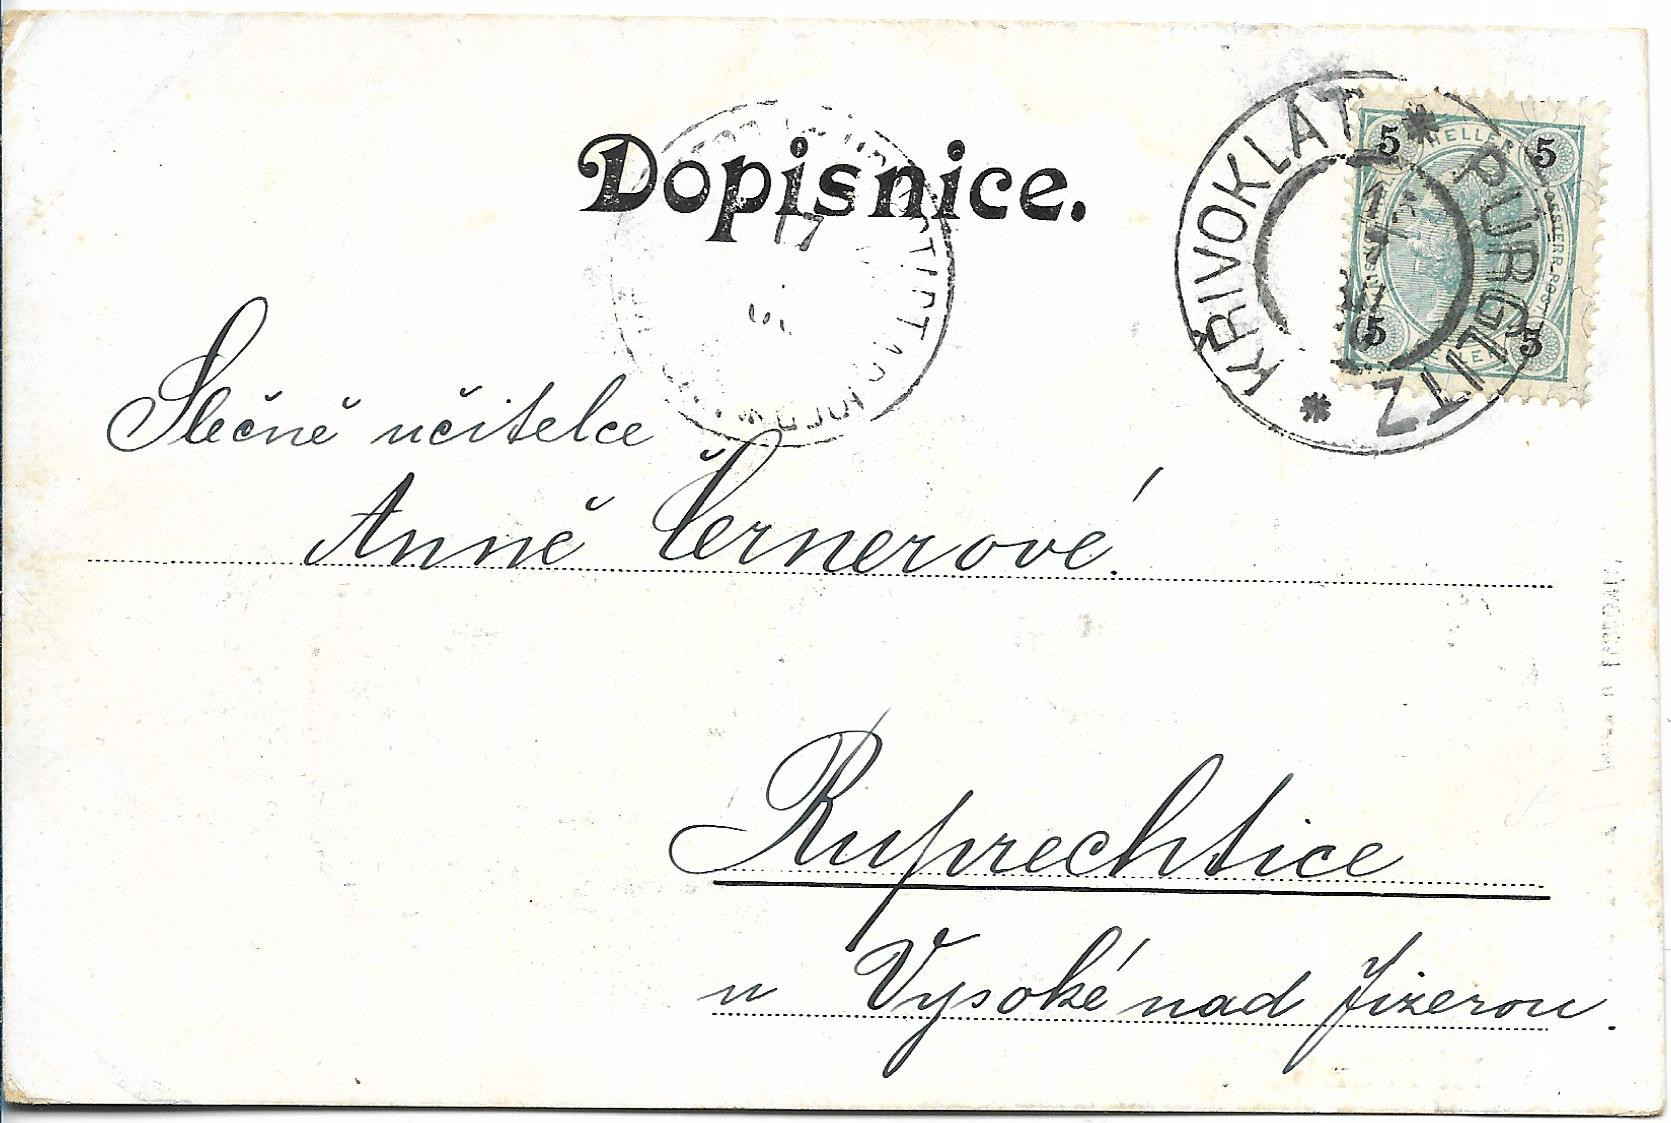 Dopisnice.
KŘIVOKLÁT * PÜRGLITZ *
5 HELLER 5
OESTERR. POST
5 HELLER 5
17
Slečně učitelce
Anně Černerové.
Ruprechtice
u Vysoké nad Jizerou.